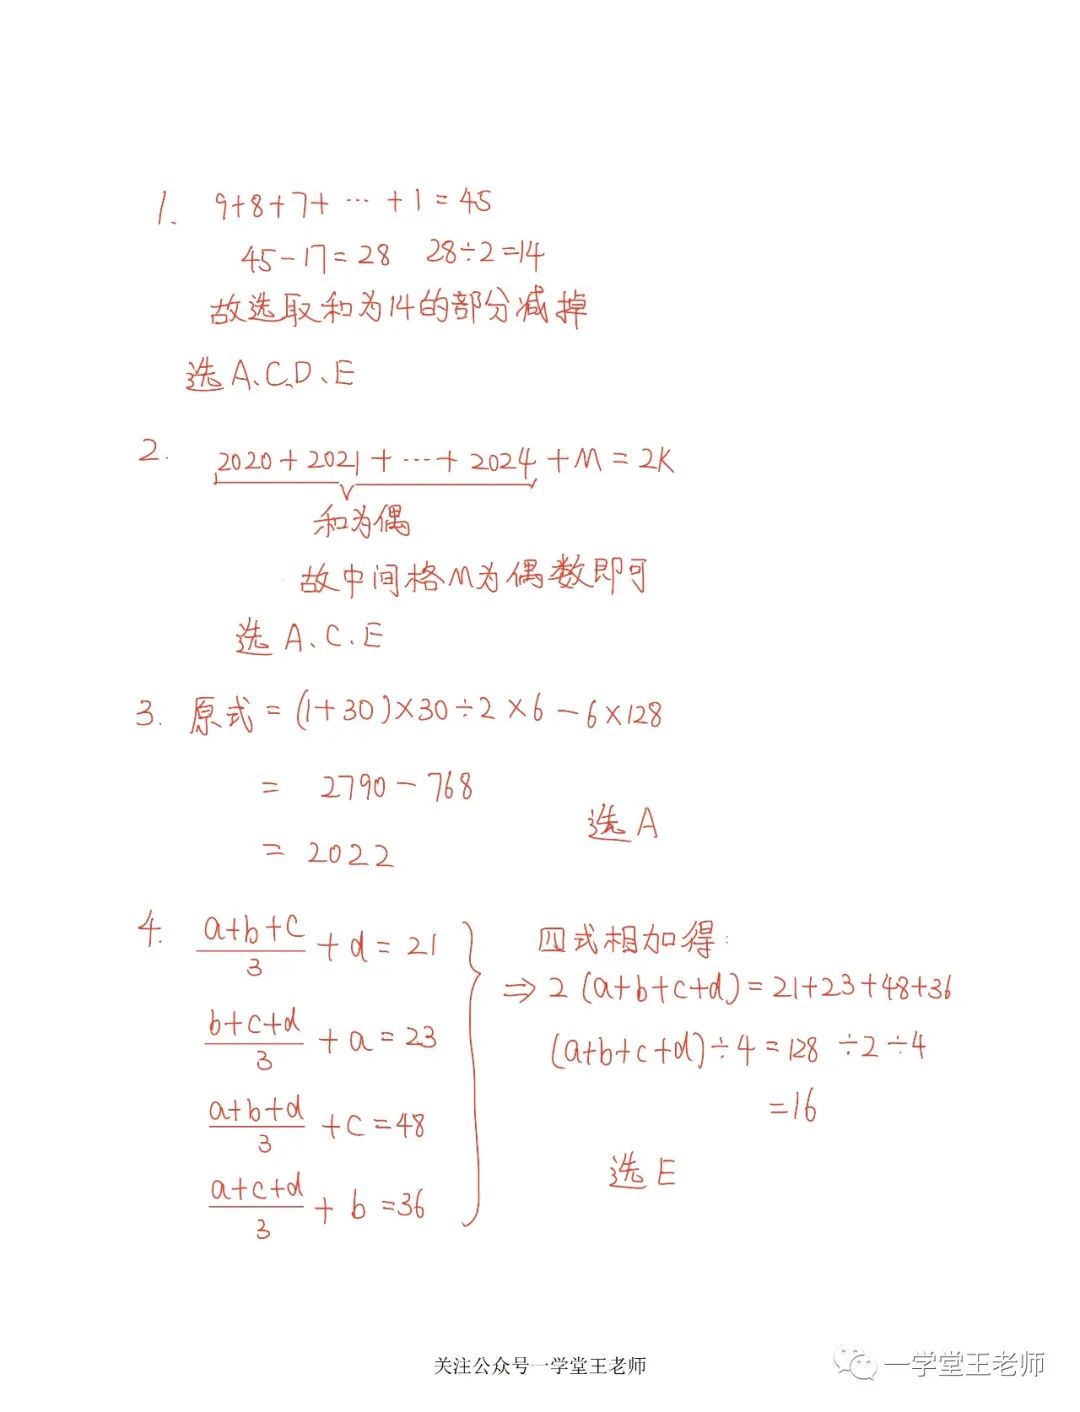 1. 9+8+7+ … +1=45
45-17=28 28÷2=14
故选取和为14的部分减掉
选A、C、D、E
2. 2020+2021+…+2024+M=2K
和为偶
故中间格M为偶数即可
选A、C、E
3. 原式=(1+30)×30÷2×6-6×128
= 2790-768
选A
= 2022
4. (a+b+c)/3+d=21
(b+c+d)/3+a=23
(a+b+d)/3+c=48
(a+c+d)/3+b=36
四式相加得:
⇒2(a+b+c+d)=21+23+48+36
(a+b+c+d)÷4=128÷2÷4
=16
选E
关注公众号一学堂王老师
一学堂王老师